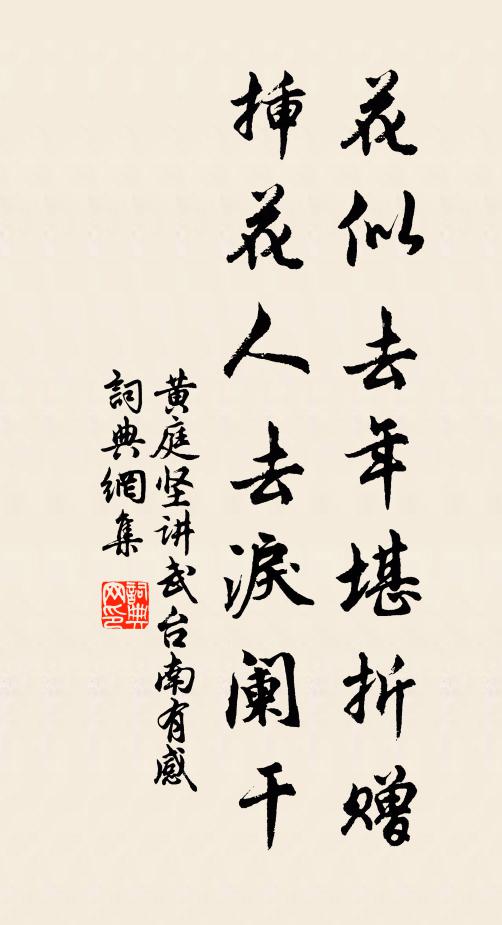 花似去年堪折赠
插花人去淚阑干
黄庭坚讲武台南有感
詞典網集
詞典网印